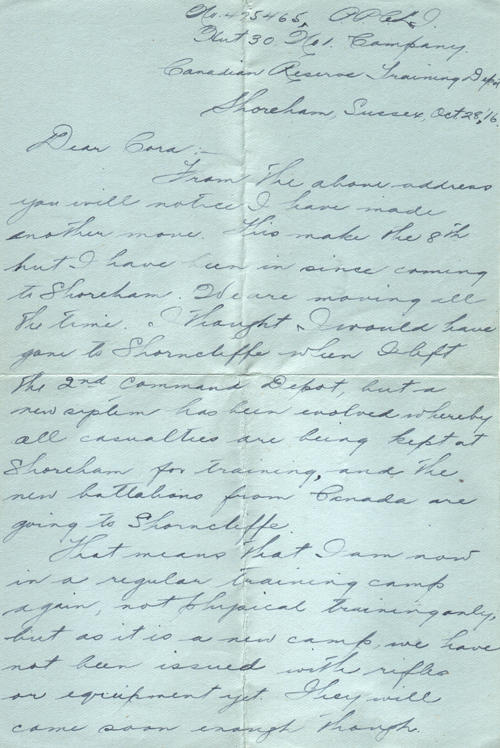 No. 475465, PPCLI.
Hut 30 No 1. Company
Canadian Reserve Training Depot
Shoreham, Sussex, Oct 28, '16.
Dear Cora :—
From the above address
you will notice I have made
another move. This make the 8th
hut I have been in since coming
to Shoreham. We are moving all
the time. I thought I would have
gone to Shorncliffe when I left
the 2nd Command Depot, but a
new system has been evolved whereby
all casualties are being kept at
Shoreham for training, and the
new battalions from Canada are
going to Shorncliffe
That means that I am now
in a regular training camp
again, not physical training only,
but as it is a new camp, we have
not been issued with rifles
or equipment yet. They will
come soon enough though.